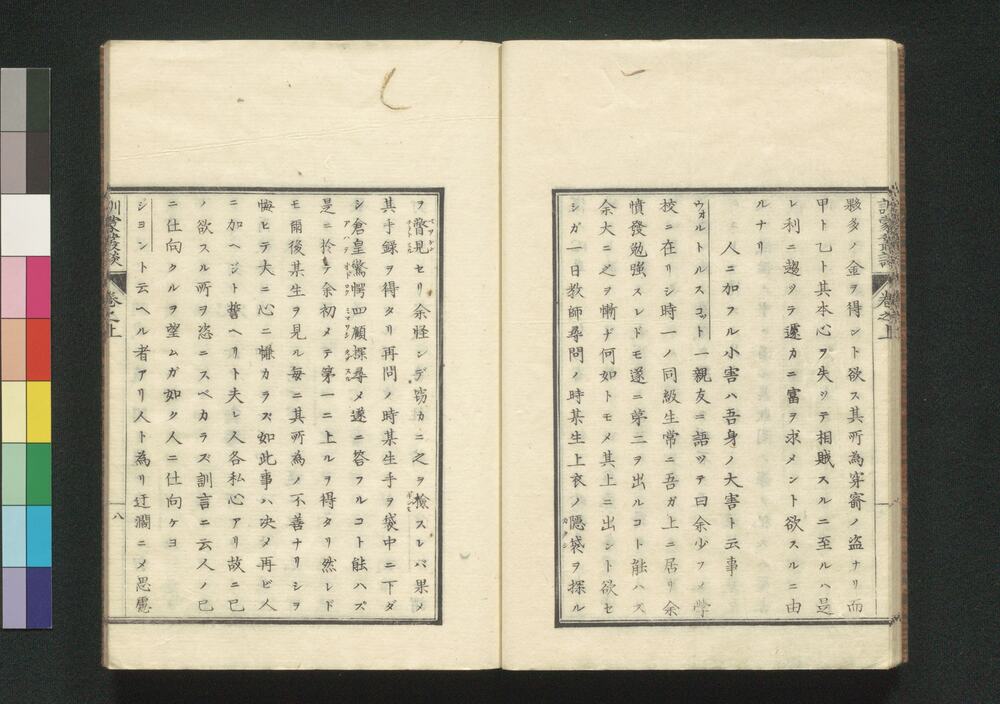 訓蒙叢談 巻之上
夥多ノ金ヲ得ント欲ス其所為穿窬ノ盗ナリ而
甲ト乙ト其本心ヲ失ツテ相賊スルニ至ルハ是
レ利ニ趨ツテ遽カニ富ヲ求メント欲スルニ由
ルナリ
人ニ加フル小害ハ吾身ノ大害ト云事
ウォルトルスコット一親友ニ語ツテ曰余少フメ學
校ニ在リシ時一ノ同級生常ニ吾ガ上ニ居リ余
憤發勉強スレドモ遂ニ第二ヲ出ルコト能ハズ
余大ニ之ヲ慚ヂ何如トモメ其上ニ出ント欲セ
シガ一日教師尋問ノ時某生上衣ノ隠袋ヲ探ル
カクシ
ヲ瞥見セリ余怪シデ窃カニ之ヲ檢スレバ果メ
其手録ヲ得タリ再問ノ時某生手ヲ袋中ニ下ダ
シ倉皇驚愕四顧探尋メ遂ニ答フルコト能ハズ
アハテ オドロク ミマワシ タヅヌル
是ニ於テ余初メテ第一ニ上ルヲ得タリ然レド
モ爾後某生ヲ見ル毎ニ其所為ノ不善ナリシヲ
悔ヒテ大ニ心ニ慊カラズ如此事ハ决メ再ビ人
ニ加ヘジト誓ヘリト夫レ人各私心アリ故ニ己
ノ欲スル所ヲ恣ニスベカラズ訓言ニ云人ノ己
ニ仕向クルヲ望ムガ如ク人ニ仕向ケヨ
ジヨントト云ヘル者アリ人ト為リ迂濶ニメ思慮
訓蒙叢談 巻之上
八